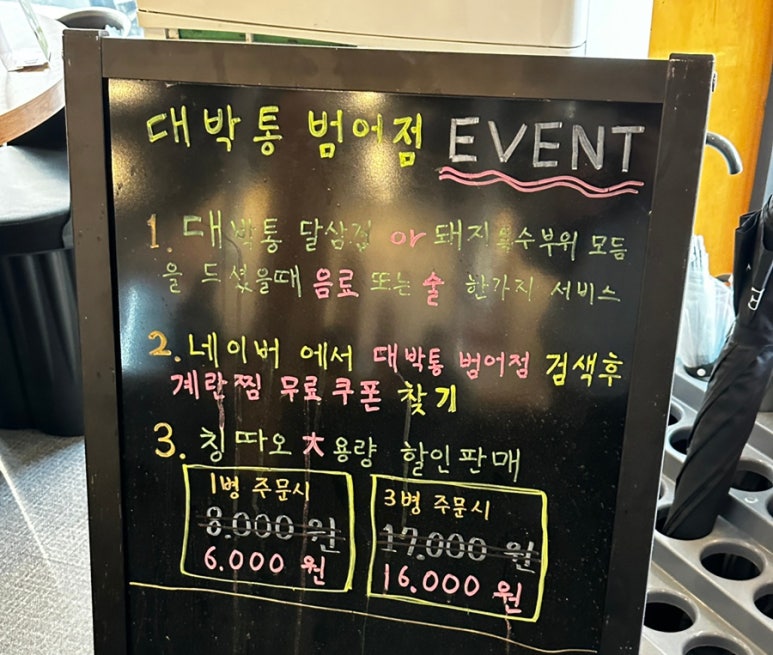 대박통 범어점 EVENT
1. 대박통 달삼겹 or 돼지특수부위 모듬
을 드셨을때 음료 또는 술 한가지 서비스
2. 네이버 에서 대박통 범어점 검색후
계란찜 무료쿠폰 찾기
3. 칭따오 大용량 할인판매
1병 주문시
8.000 원
6.000 원
3병 주문시
17.000 원
16.000 원